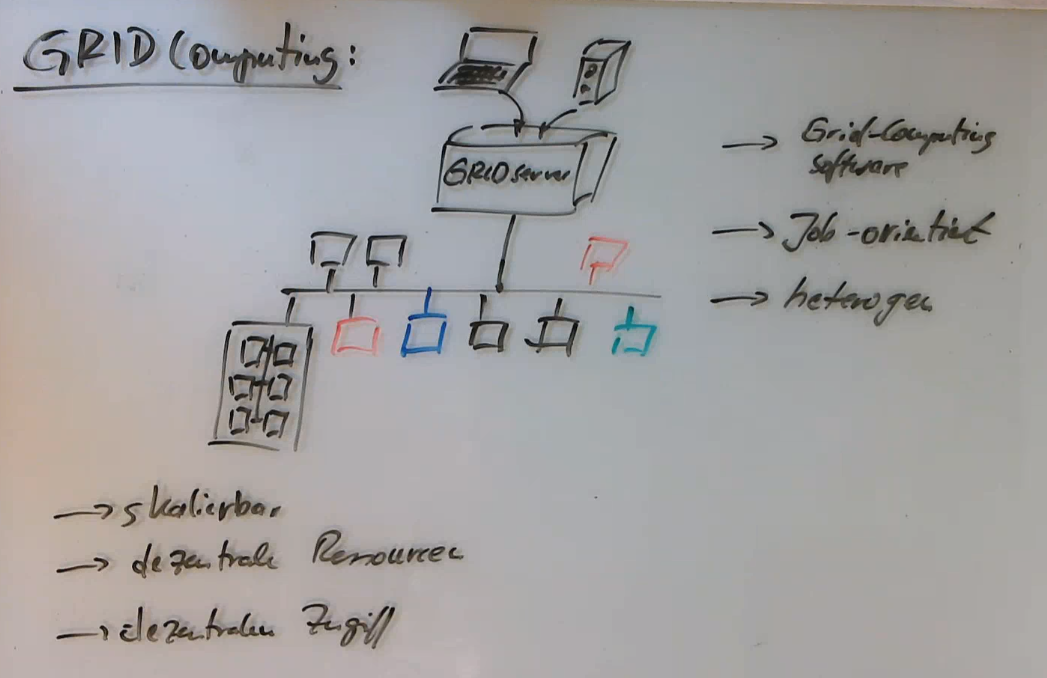 GRID Computing:
GRID Server
→ Grid-Computing
Software
→ Job-orientiert
→ heterogen
→ skalierbar
→ dezentrale Ressourcen
→ dezentralen Zugriff